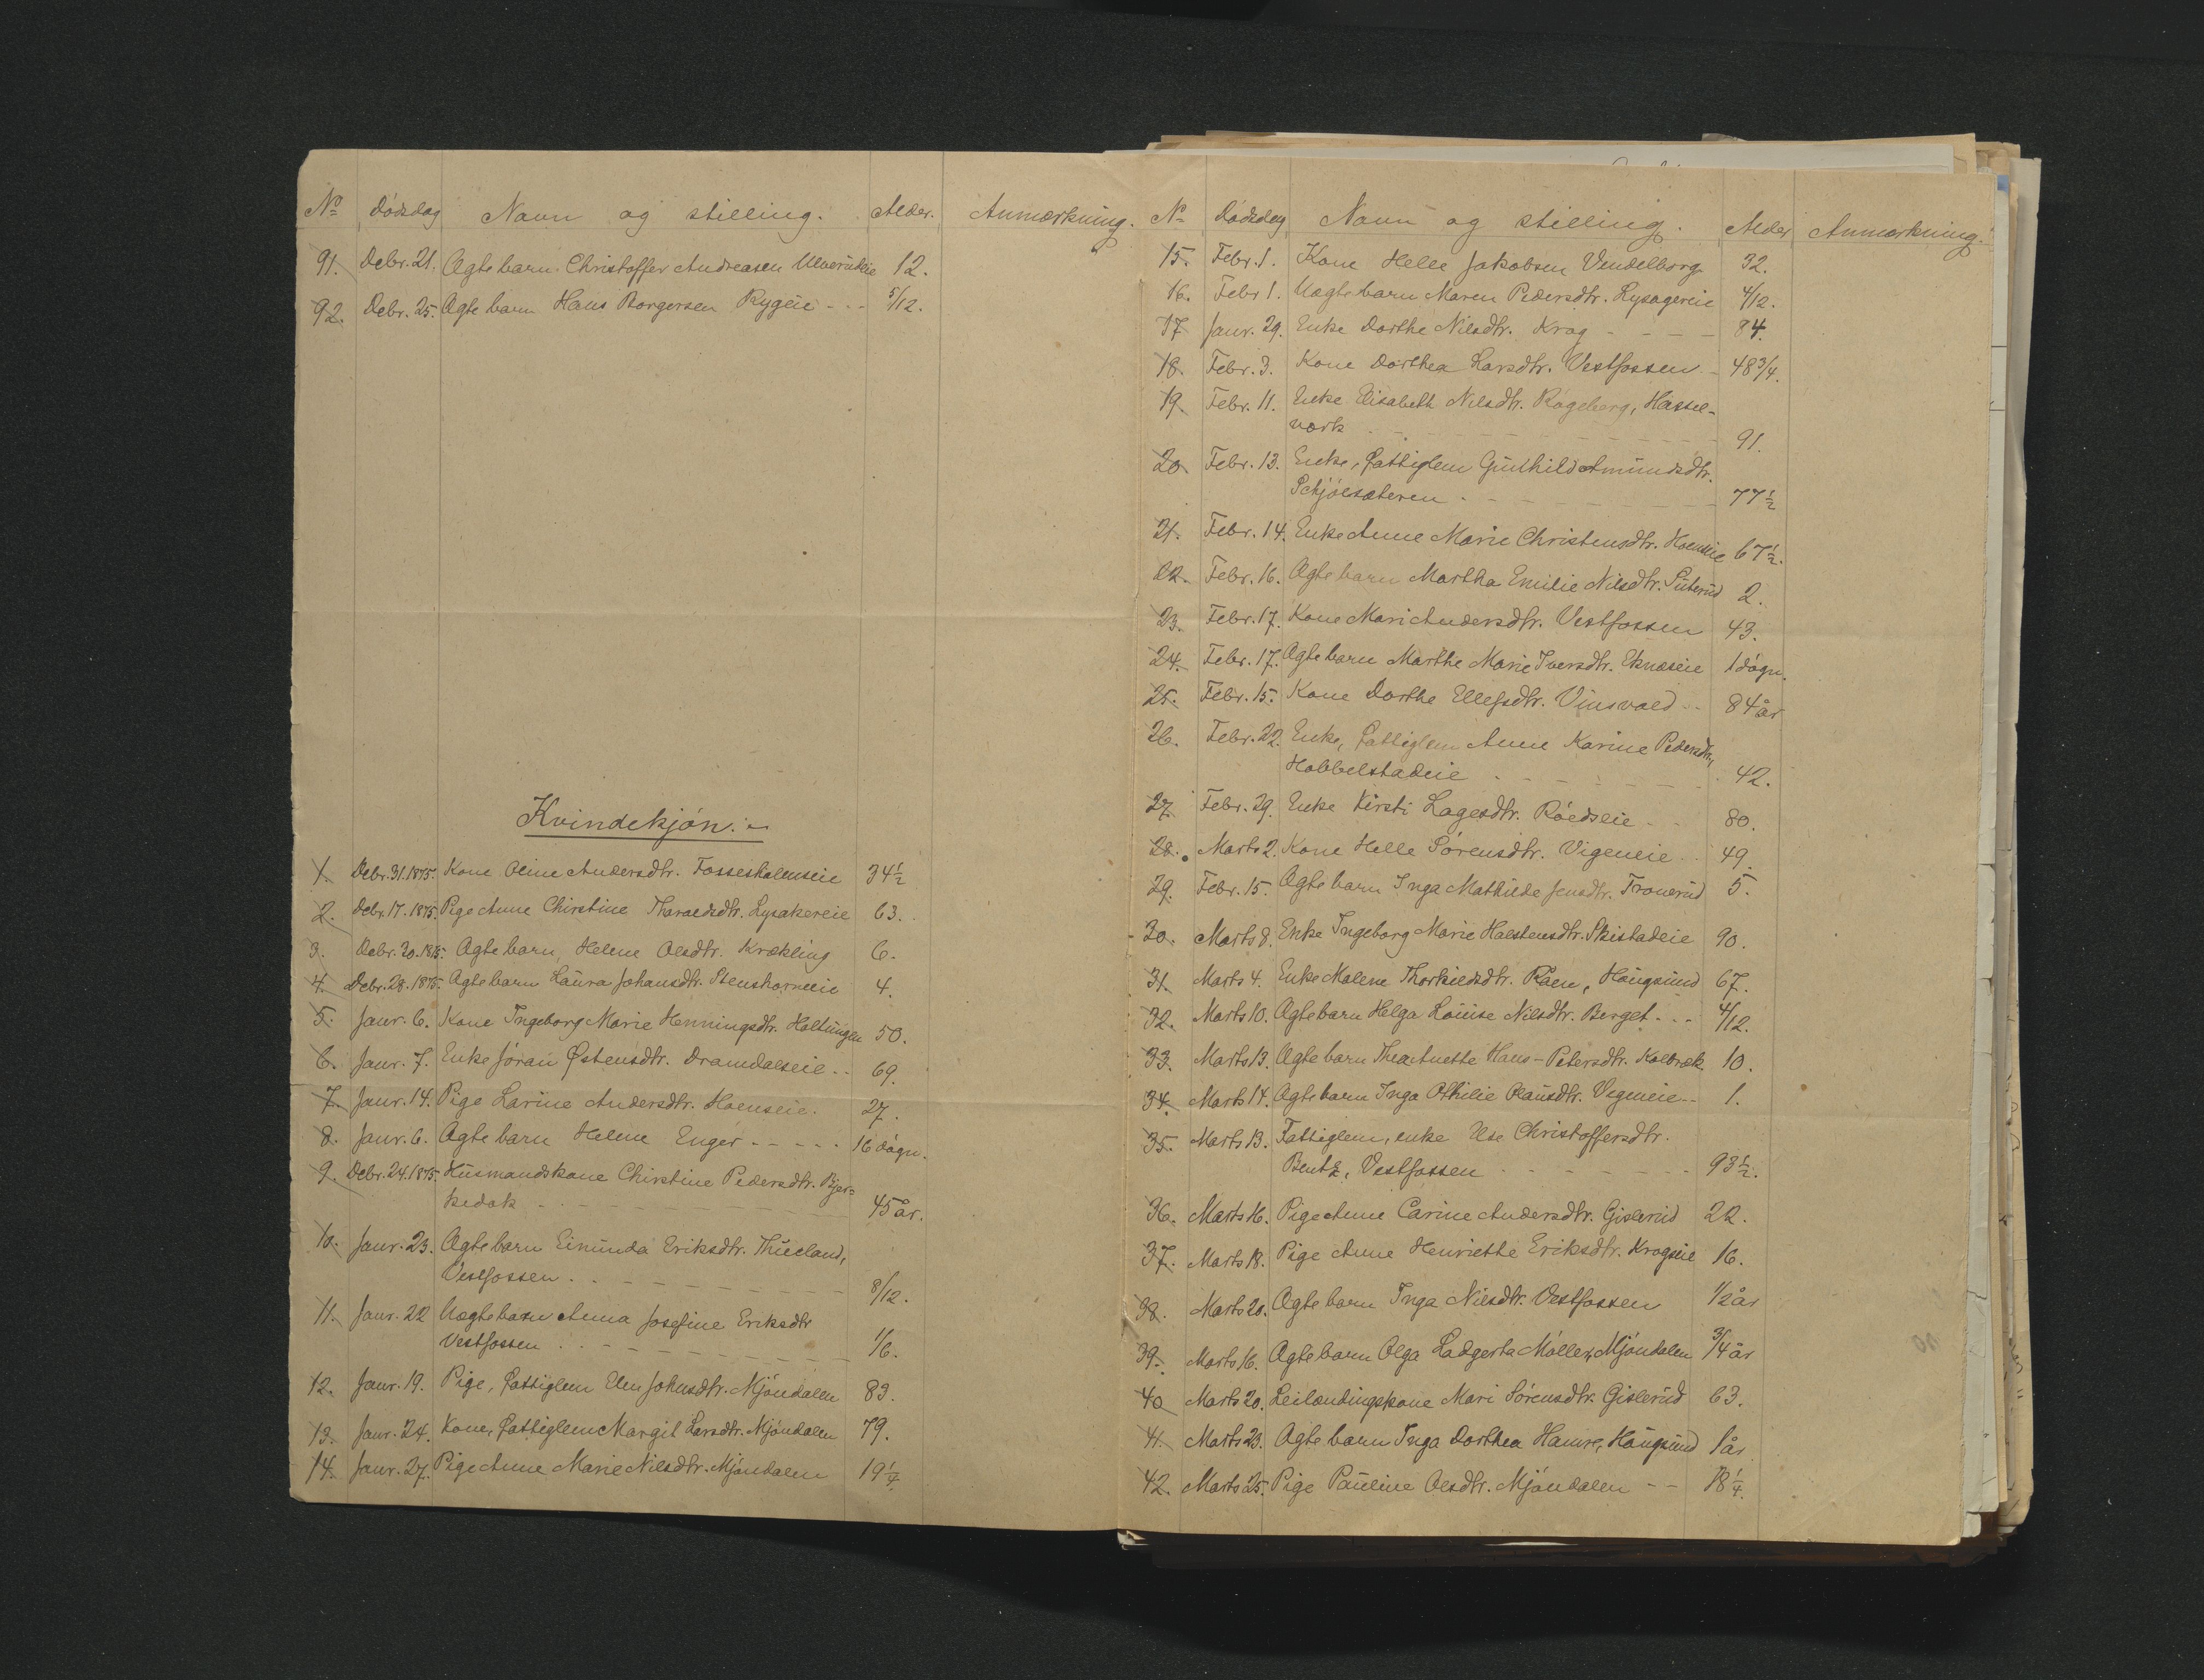 No Dödsdag Navn og stilling. Alder. Anmærkning.
91. Debr. 21. Ægtebarn Christoffer Andreasen Ulverudeie 12.
92. Debr. 25. Ægtebarn Hans Borgersen Rygeie - - - 5/12.
Kvindekjön:
1. Debr. 31. 1875. Kone Oline Andersdtr. Fossesholmseie 34½
2. Debr. 17. 1875. Pige Anne Chirstine Tharaldsdtr. Lysakereie 63.
3. Debr. 20. 1875. Ægtebarn, Helene Olsdtr. Krækling 6.
4. Debr. 28. 1875. Ægtebarn Laura Johansdtr. Stenshorneie 4.
5. Janr. 6. Kone Ingeborg Marie Henningsdtr. Holtungen 50.
6. Janr. 7. Enke Jöran Østensdtr. Dramdalseie - - 69.
7. Janr. 14. Pige Larine Andersdtr. Hoenseie. 27.
8. Janr. 6. Ægtebarn Helene Enger - - - - - 16 dögn.
9. Debr. 24. 1875. Husmandskone Chirstine Pedersdtr. Bjer-
kedok - - - 45 år.
10. Janr. 23. Ægtebarn Einunda Eriksdtr. Thueland,
Vestfossen - - - 8/12.
11. Janr. 22 Uægtebarn Anna Josefine Eriksdtr
Vestfossen - - - 1/6.
12. Janr. 19. Pige, Fattiglem Elen Johnsdtr. Mjöndalen 83.
13. Janr. 24. Kone, Fattiglem Margit Larsdtr. Mjöndalen 79.
14. Janr. 27. Pige Anne Marie Nilsdtr. Mjöndalen 19¼
No Dödsdag Navn og stilling. Alder Anmærkning.
15. Febr. 1. Kone Helle Jakobsen Vendelborg 32.
16. Febr 1. Uægtebarn Maren Pedersdtr. Lysagereie 4/12.
17 Janr. 29. Enke Dorthe Nilsdtr. Krog - - - - 84.
18. Febr. 3. Kone Dorthea Larsdtr. Vestfossen - 48 3/4.
19. Febr. 11. Enke Elisabeth Nilsdtr. Rogeberg, Hassel-
værk - - - 91.
20. Febr. 13. Enke, Fattiglem Gunhild Amundsdtr.
Schjölsæteren - - - 77½
21. Febr. 14. Enke Anne Marie Christensdtr. Hoenseie 67½.
22. Febr. 16. Ægtebarn Martha Emilie Nilsdtr. Puterud 2.
23. Febr. 17. Kone Mari Andersdtr. Vestfossen 43.
24. Febr. 17. Ægtebarn Marthe Marie Iversdtr. Eknæseie 1 dögn.
25. Febr. 15. Kone Dorthe Ellefsdtr. Vinsvold - - 84 år
26. Febr. 22. Enke, Fattiglem Anne Karine Pedersdtr,
Hobbelstadeie - - - 42.
27. Febr. 29. Enke Kirsti Lagesdtr. Röedseie - - 80.
28. Marts 2. Kone Helle Sörensdtr. Vigeneie - - 49.
29. Febr. 15. Ægtebarn Inga Mathilde Jensdtr. Tronerud 5.
30. Marts 8. Enke Ingeborg Marie Halstensdtr. Skistadeie 90.
31. Marts 4. Enke Malene Thorkildsdtr. Råen, Hougsund 67.
32. Marts 10. Ægtebarn Helga Louise Nilsdtr. Berget - - - 4/12.
33. Marts 13. Ægtebarn Thea Anette Hans-Petersdtr. Kolbræk 10.
34. Marts 14. Ægtebarn Inga Othilie Olausdtr. Vegneie - - 1.
35. Marts 13. Fattiglem, enke Else Christoffersdtr.
Bentz, Vestfossen - - - 93½.
36. Marts 16. Pige Anne Carine Andersdtr. Gislerud 22.
37. Marts 18. Pige Anne Henriette Eriksdtr. Krogseie 16.
38. Marts 20. Ægtebarn Inga Nilsdtr. Vestfossen 1/2 år
39. Marts 16. Ægtebarn Olga Ladgerta Möller, Mjöndalen 3/4 år
40 Marts 20. Leilændingskone Mari Sörensdtr. Gislerud 63.
41. Marts 23. Ægtebarn Inga Dorthea Hamre, Hougsund 1 år
42. Marts 25. Pige Pauline Olsdtr. Mjöndalen - - 18¼.